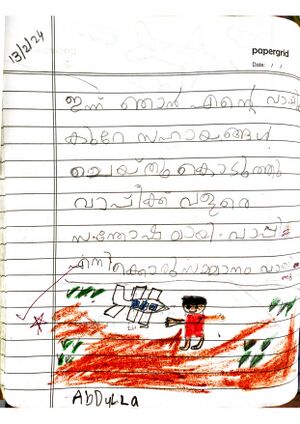 13/2/24
papergrid
Date: / /
ഇന്ന് ഞാൻ എന്റെ
കുറേ സഹായങ്ങൾ
ചെയ്തു കൊടുത്തു
വാപ്പിക്ക് വളരെ
സന്തോഷമായി. വാപ്പി
എനിക്കൊരു സമ്മാനം
ABDULLA